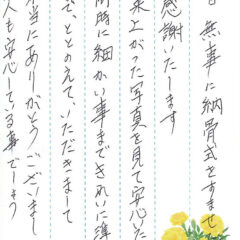 日 無事に納骨式をすませ
感謝いたします
来上がった写真を見て安心いた
同時に細かい事まできれいに準
で、ととのえて、いただきまして
本当にありがとうございまし
人も安心している事でしょう